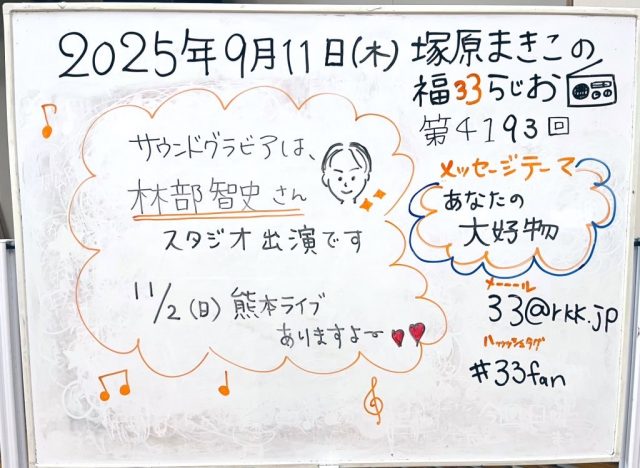 2025年9月11日(木) 塚原まきこの
福33らじお
第4193回
サウンドグラビアは、
林部智史さん
スタジオ出演です
11/2(日) 熊本ライブ
ありますよ〜
メッセージテーマ
あなたの
大好物
メーール
33@rkk.jp
ハッッシュタグ
#33fan